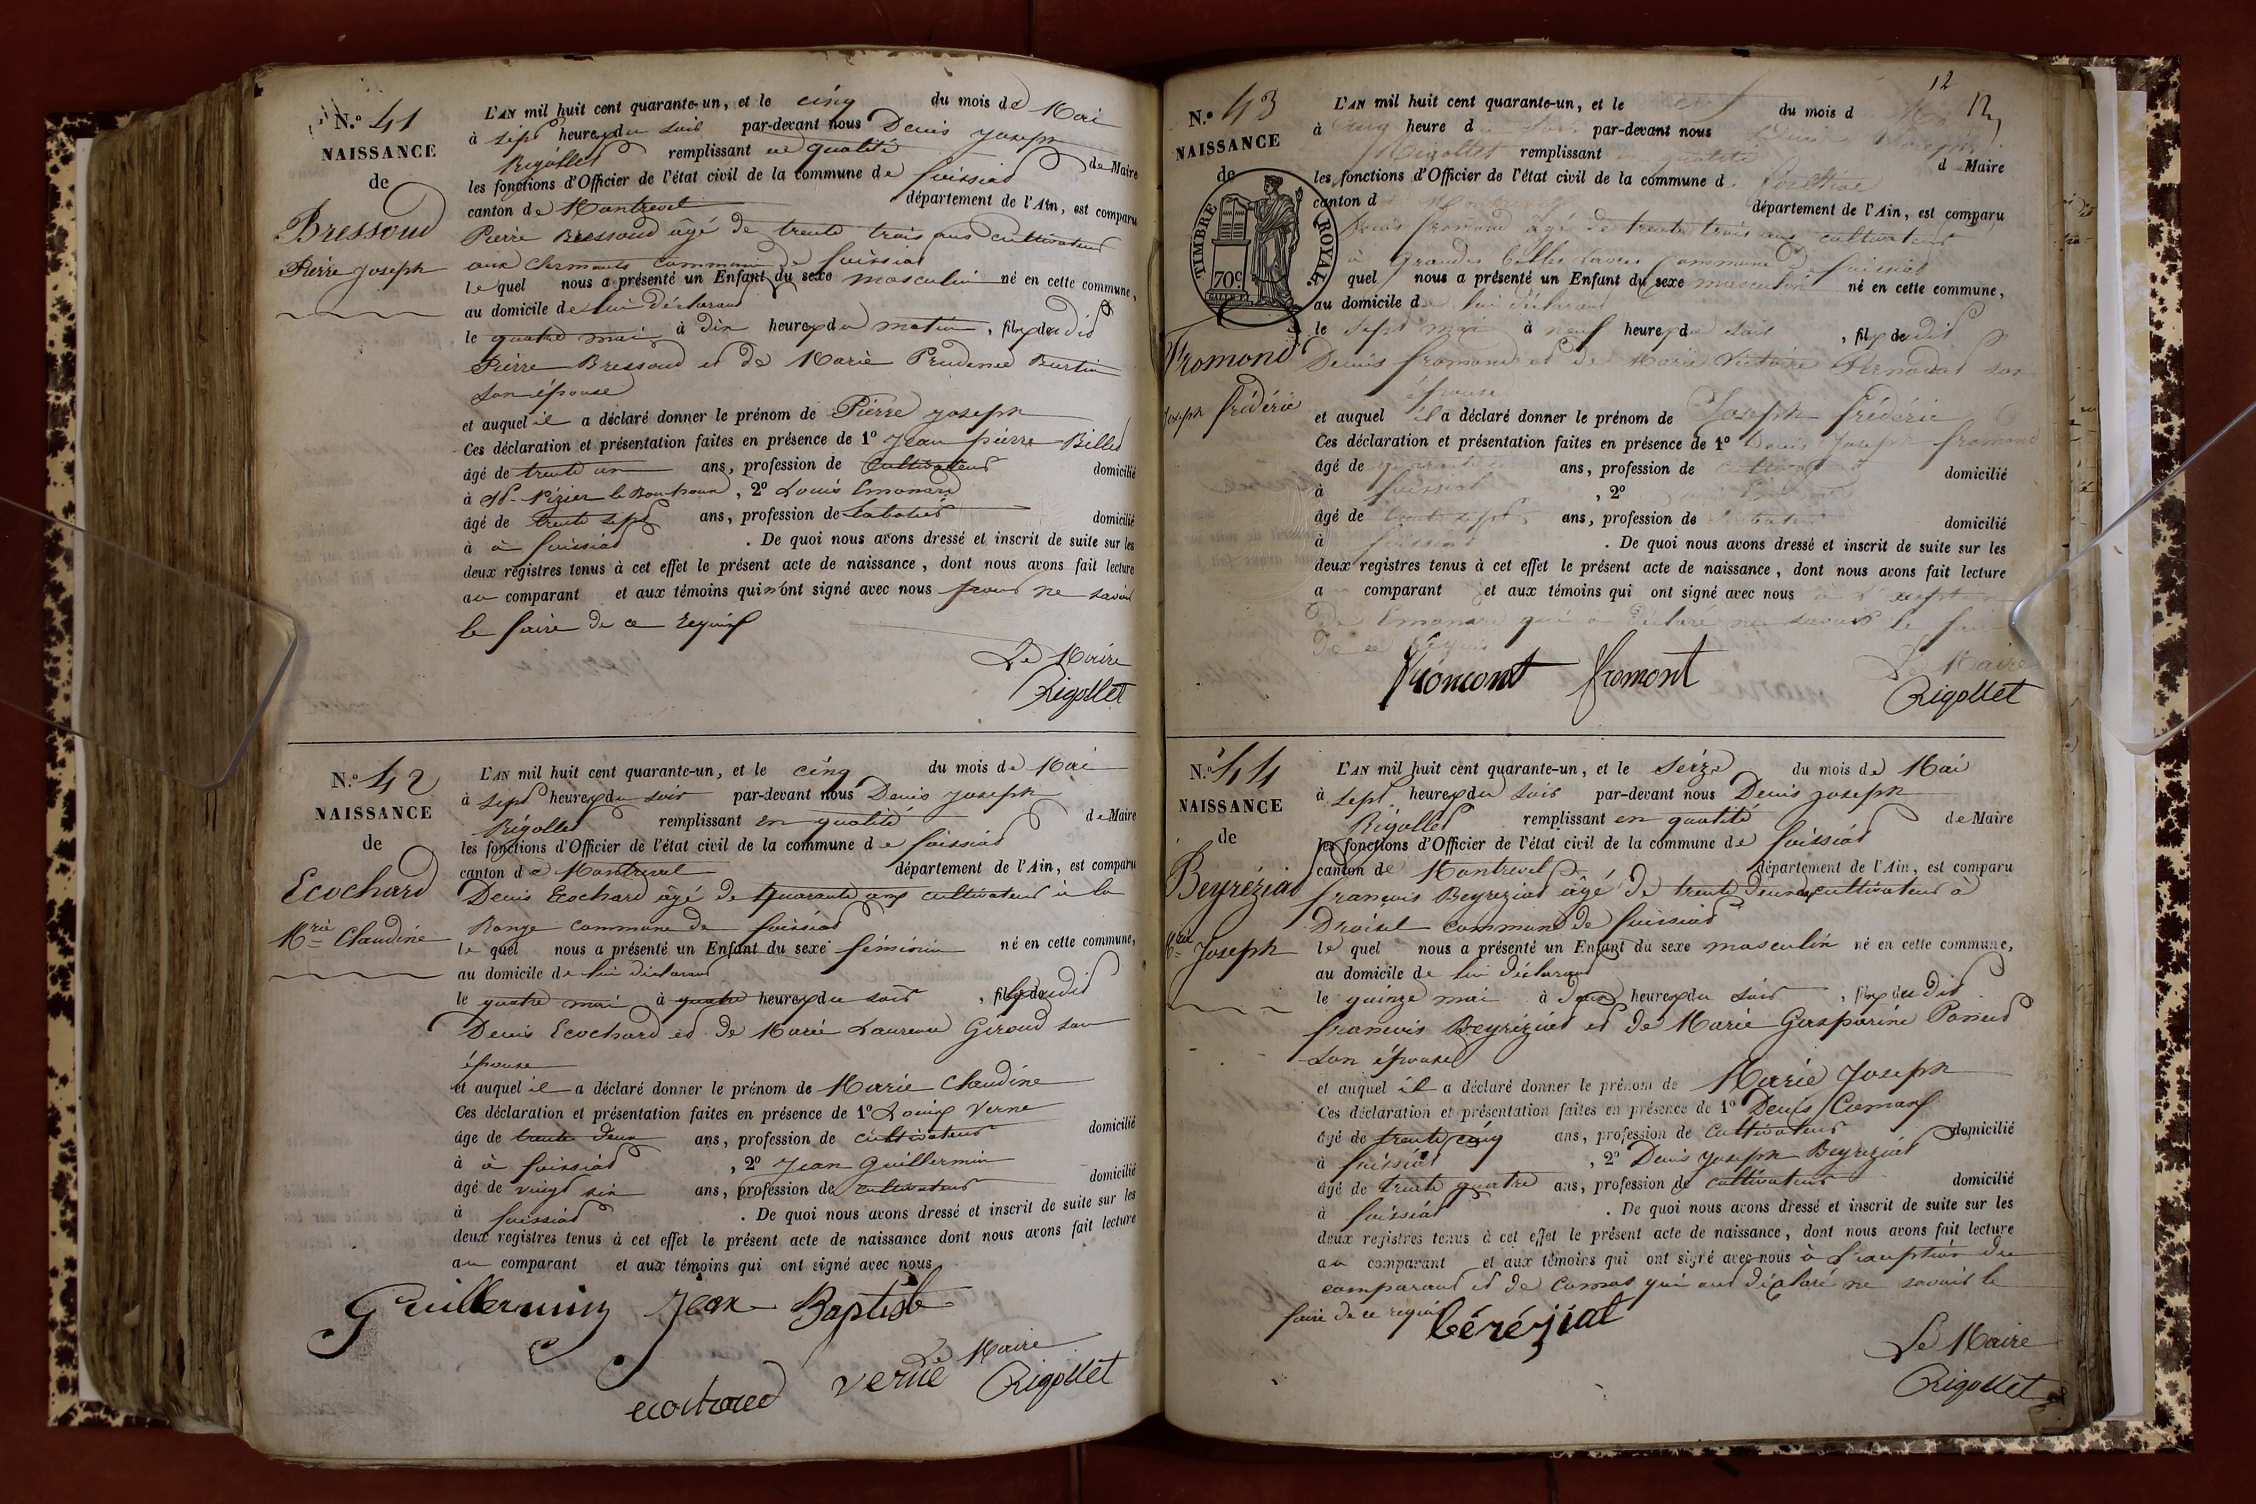 N.º 41
NAISSANCE
de
Bressoud
Pierre Joseph
L'AN mil huit cent quarante-un, et le cinq du mois de Mai
à sept heures du soir par-devant nous Denis Joseph
Rigollet remplissant en qualité de Maire
les fonctions d'Officier de l'état civil de la commune de foissiat
canton de Montrevel département de l'Ain, est comparu
Pierre Bressoud âgé de trente trois ans cultivateur
aux commune de foissiat
le quel nous a présenté un Enfant du sexe masculin né en cette commune,
au domicile de lui déclarant
le quatre mai à dix heures du matin, fils dudit
Pierre Bressoud et de Marie Prudence Burtin
son épouse
et auquel il a déclaré donner le prénom de Pierre Joseph
Ces déclaration et présentation faites en présence de 1º Jean pierre Billet
âgé de trente un ans, profession de cultivateur domicilié
à St Nizier le Bouchoux, 2º Louis Emonard
âgé de trente sept ans, profession de sabotier domicilié
à à foissiat. De quoi nous avons dressé et inscrit de suite sur les
deux registres tenus à cet effet le présent acte de naissance, dont nous avons fait lecture
au comparant et aux témoins qui n'ont signé avec nous pour ne savoir
le faire de ce requis
Le Maire
Rigollet
N.º 42
NAISSANCE
de
Ecochard
Mrie Claudine
L'AN mil huit cent quarante-un, et le cinq du mois de Mai
à sept heures du soir par-devant nous Denis Joseph
Rigollet remplissant en qualité de Maire
les fonctions d'Officier de l'état civil de la commune de foissiat
canton de Montrevel département de l'Ain, est comparu
Denis Ecochard âgé de quarante ans cultivateur à la
Ronge commune de foissiat
le quel nous a présenté un Enfant du sexe féminin né en cette commune,
au domicile de lui déclarant
le quatre mai à quatre heures du soir, fille dudit
Denis Ecochard et de Marie Laurence Giroud son
épouse
et auquel il a déclaré donner le prénom de Marie Claudine
Ces déclaration et présentation faites en présence de 1º Louis Verne
âge de trente deux ans, profession de cultivateur domicilié
à à foissiat, 2º Jean Guillermin
âgé de vingt six ans, profession de cultivateur domicilié
à foissiat. De quoi nous avons dressé et inscrit de suite sur les
deux registres tenus à cet effet le présent acte de naissance dont nous avons fait lecture
au comparant et aux témoins qui ont signé avec nous
Guillermin Jean Baptiste
Le Maire
ecochard verne Rigollet
12
12
N.º 43
NAISSANCE
de
TIMBRE ROYAL
70c
Fromond
Joseph frédéric
L'AN mil huit cent quarante-un, et le du mois d
à cinq heure d soir par-devant nous Denis Joseph
Rigollet remplissant en qualité d Maire
les fonctions d'Officier de l'état civil de la commune d foissiat
canton d département de l'Ain, est comparu
Denis fromond âgé de trente trois ans cultivateur
à grandes commune de foissiat
quel nous a présenté un Enfant du sexe masculin né en cette commune,
au domicile de lui déclarant
le sept mai à neuf heures du soir, fils dudit
Denis fromond et de Marie Victoire son
épouse
et auquel il a déclaré donner le prénom de Joseph frédéric
Ces déclaration et présentation faites en présence de 1º Denis Joseph fromond
âgé de ans, profession de cultivateur domicilié
à foissiat, 2º
âgé de trente sept ans, profession de sabotier domicilié
à foissiat. De quoi nous avons dressé et inscrit de suite sur les
deux registres tenus à cet effet le présent acte de naissance, dont nous avons fait lecture
a comparant et aux témoins qui ont signé avec nous à l'exception
de Emonard qui a déclaré ne savoir le faire
de ce requis
fromont Le Maire
Rigollet
N.º 44
NAISSANCE
de
Beyréziat
Mrie Joseph
L'AN mil huit cent quarante-un, et le seize du mois de Mai
à sept heures du soir par-devant nous Denis Joseph
Rigollet remplissant en qualité de Maire
les fonctions d'Officier de l'état civil de la commune de foissiat
canton de Montrevel département de l'Ain, est comparu
françois Beyreziat âgé de trente deux ans cultivateur à
Droisel commune de foissiat
le quel nous a présenté un Enfant du sexe masculin né en cette commune,
au domicile de lui déclarant
le quinze mai à deux heures du soir, fils dudit
francois Beyréziat et de Marie Gasparine Ponard
son épouse
et auquel il a déclaré donner le prénom de Marie Joseph
Ces déclaration et présentation faites en présence de 1º Denis
âgé de trente cinq ans, profession de cultivateur domicilié
à foissiat, 2º Denis Joseph Beyreziat
âgé de trente quatre ans, profession de cultivateur domicilié
à foissiat. De quoi nous avons dressé et inscrit de suite sur les
deux registres tenus à cet effet le présent acte de naissance, dont nous avons fait lecture
au comparant et aux témoins qui ont signé avec nous à l'exception du
comparant et de qui ont déclaré ne savoir le
faire de ce requis
béréziat
Le Maire
Rigollet